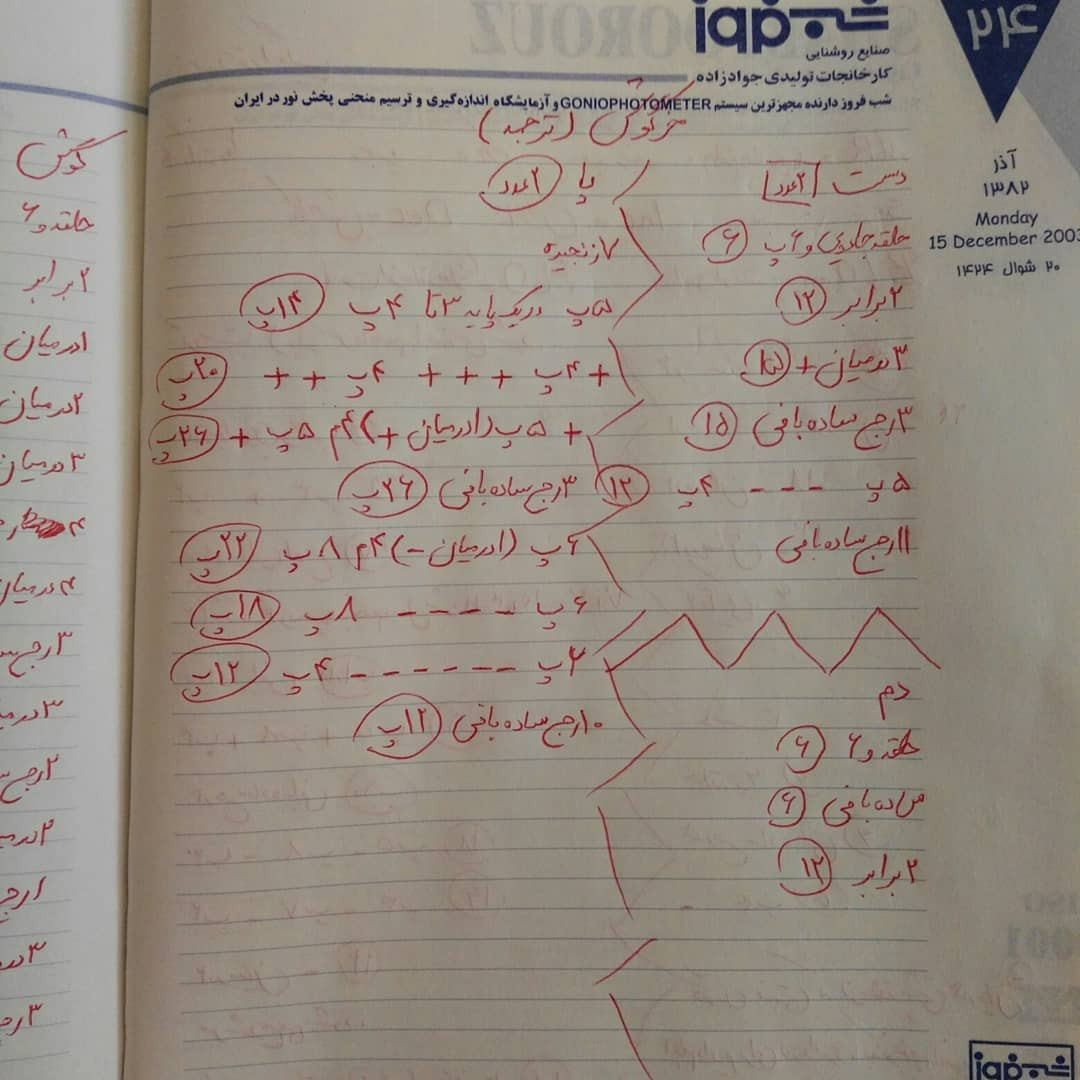 شب فروز
صنایع روشنایی
کارخانجات تولیدی جوادزاده
شب فروز دارنده مجهزترین سیستم GONIOPHOTOMETER و آزمایشگاه اندازه‌گیری و ترسیم منحنی پخش نور در ایران
۲۴
آذر
۱۳۸۲
Monday
15 December 2003
۲۰ شوال ۱۴۲۴
خرگوش (ترجمه)
دست ۲ عدد
حلقه جادویی و ۶ پ ۶
۲ برابر ۱۲
۳ درمیان + ۱۵
۳ رج ساده بافی ۱۵
۵ پ - - - ۴ پ ۱۲
۱۱ رج ساده بافی
دم
حلقه و ۶ ۶
ساده بافی ۶
۲ برابر ۱۲
پا ۲ عدد
۷ زنجیره
۵ پ در یک پایه ۳ تا ۴ پ ۱۴ پ
+ ۴ پ + + + ۴ پ + + ۲۰ پ
+ ۵ پ (۱ درمیان +) ۴ م ۵ پ + ۲۶ پ
۳ رج ساده بافی ۲۶ پ
۶ پ (۱ درمیان -) ۴ م ۸ پ ۲۲ پ
۶ پ - - - - ۸ پ ۱۸ پ
۲ پ - - - - - - ۴ پ ۱۲ پ
۱۰ رج ساده بافی ۱۲ پ
گوش
حلقه و ۶
۲ برابر
۱ درمیان
۲ درمیان
۳ درمیان
۴ درمیان
۳ رج
۳ درمیا
۲ رج
۲ درمیا
۱ رج
۳ در
۳ رج
شب فروز